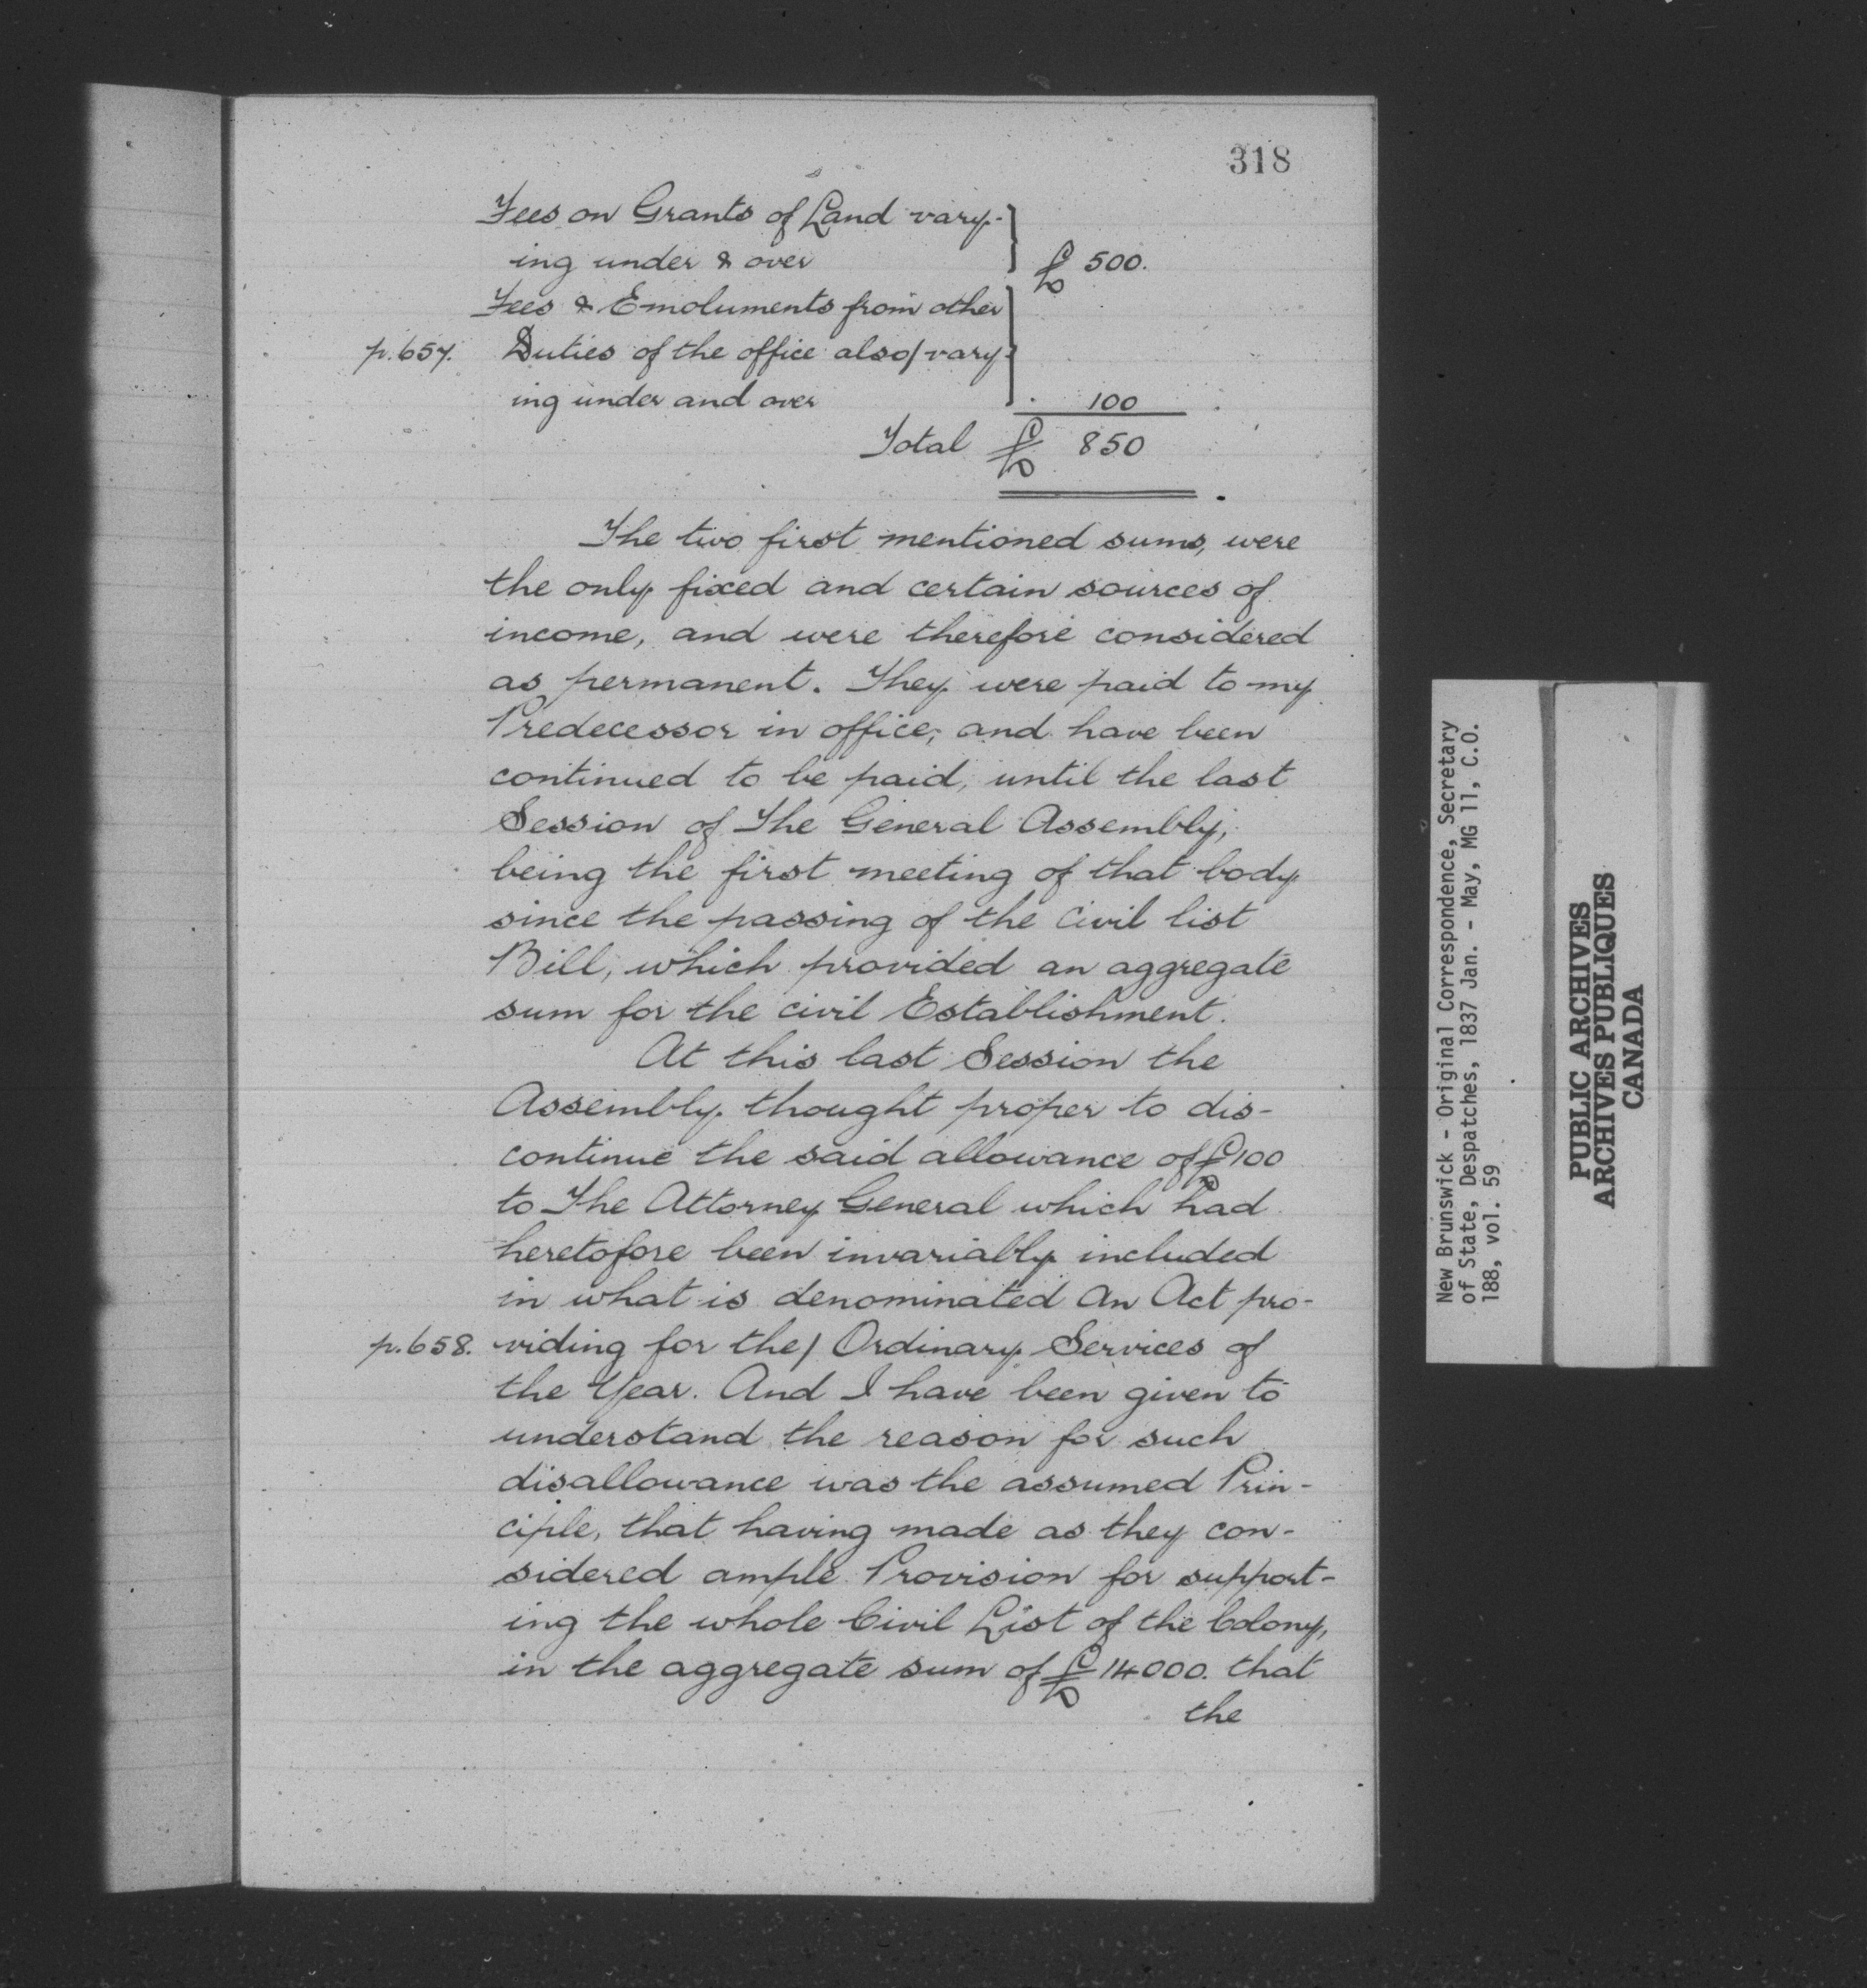 318
Fees on Grants of Land vary-
ing under & over £ 500.
Fees & Emoluments from other
p.657. Duties of the office also/ vary-
ing under and over 100
Total £ 850
The two first mentioned sums, were
the only fixed and certain sources of
income, and were therefore considered
as permanent. They were paid to my
Predecessor in office, and have been
continued to be paid, until the last
Session of The General Assembly,
being the first meeting of that body
since the passing of the Civil list
Bill, which provided an aggregate
sum for the civil Establishment.
At this last Session the
Assembly thought proper to dis-
continue the said allowance of £100
to The Attorney General which had
heretofore been invariably included
in what is denominated An Act pro-
p.658. viding for the/ Ordinary Services of
the Year. And I have been given to
understand the reason for such
disallowance was the assumed Prin-
ciple, that having made as they con-
sidered ample Provision for support-
ing the whole Civil List of the Colony,
in the aggregate sum of £14000. that
the
New Brunswick - Original Correspondence, Secretary
of State, Despatches, 1837 Jan. - May, MG 11, C.O.
188, vol. 59
PUBLIC ARCHIVES
ARCHIVES PUBLIQUES
CANADA